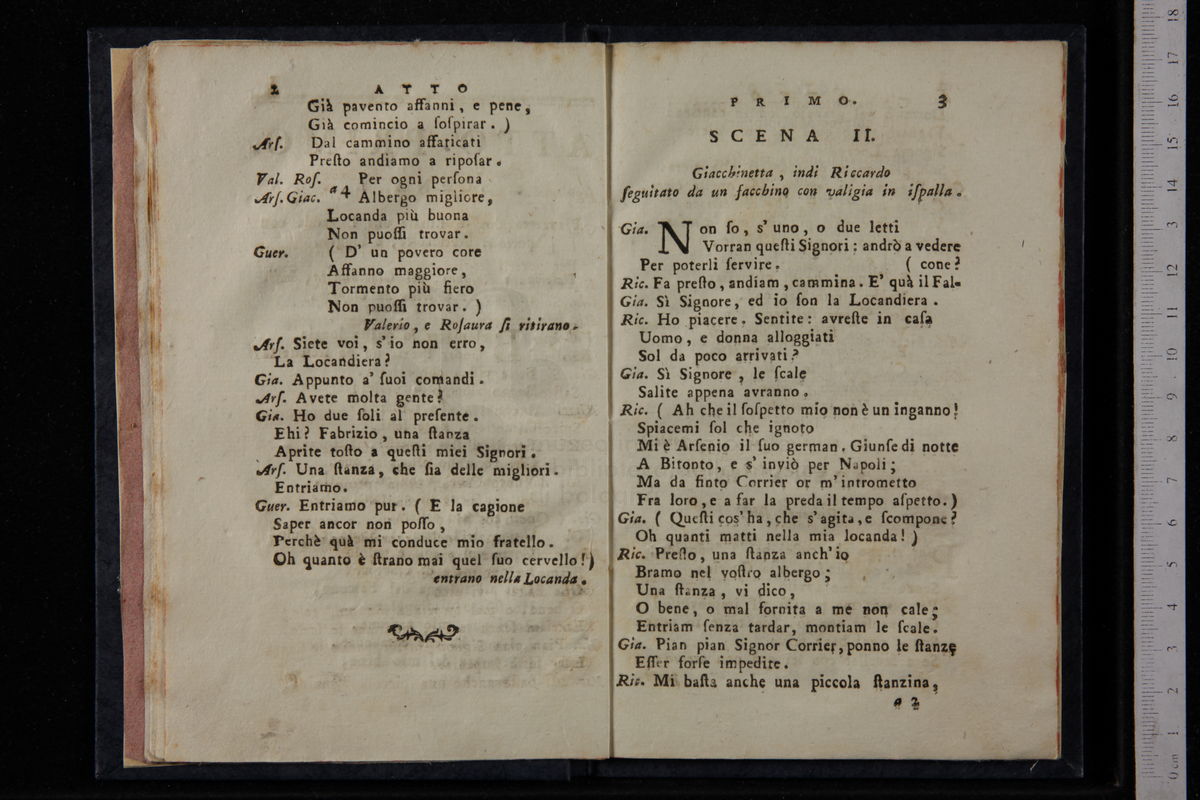 2 ATTO
Già pavento affanni, e pene,
Già comincio a ſoſpirar. )
Arſ. Dal cammino affaticati
Preſto andiamo a ripoſar.
Val. Roſ. Per ogni perſona
Arſ. Giac. a 4 Albergo migliore,
Locanda più buona
Non puoſſi trovar.
Guer. ( D' un povero core
Affanno maggiore,
Tormento più fiero
Non puoſſi trovar. )
Valerio, e Roſaura ſi ritirano.
Arſ. Siete voi, s' io non erro,
La Locandiera?
Gia. Appunto a' ſuoi comandi.
Arſ. Avete molta gente?
Gia. Ho due ſoli al preſente.
Ehi? Fabrizio, una ſtanza
Aprite toſto a queſti miei Signori.
Arſ. Una ſtanza, che ſia delle migliori.
Entriamo.
Guer. Entriamo pur. ( E la cagione
Saper ancor non poſſo,
Perchè quà mi conduce mio fratello.
Oh quanto è ſtrano mai quel ſuo cervello!)
entrano nella Locanda.
PRIMO. 3
SCENA II.
Giacchinetta, indi Riccardo
ſeguitato da un facchino con valigia in iſpalla.
Gia. Non ſo, s' uno, o due letti
Vorran queſti Signori: andrò a vedere
Per poterli ſervire. ( cone?
Ric. Fa preſto, andiam, cammina. E' quà il Fal-
Gia. Sì Signore, ed io ſon la Locandiera.
Ric. Ho piacere. Sentite: avreſte in caſa
Uomo, e donna alloggiati
Sol da poco arrivati?
Gia. Sì Signore, le ſcale
Salite appena avranno.
Ric. ( Ah che il ſoſpetto mio non è un inganno!
Spiacemi ſol che ignoto
Mi è Arſenio il ſuo german. Giunſe di notte
A Bitonto, e s' inviò per Napoli;
Ma da finto Corrier or m' intrometto
Fra loro, e a far la preda il tempo aſpetto.)
Gia. ( Queſti cos' ha, che s' agita, e ſcompone?
Oh quanti matti nella mia locanda! )
Ric. Preſto, una ſtanza anch' io
Bramo nel voſtro albergo;
Una ſtanza, vi dico,
O bene, o mal fornita a me non cale;
Entriam ſenza tardar, montiam le ſcale.
Gia. Pian pian Signor Corrier, ponno le ſtanze
Eſſer forſe impedite.
Ric. Mi baſta anche una piccola ſtanzina,
a 2
0 cm 1 2 3 4 5 6 7 8 9 10 11 12 13 14 15 16 17 18